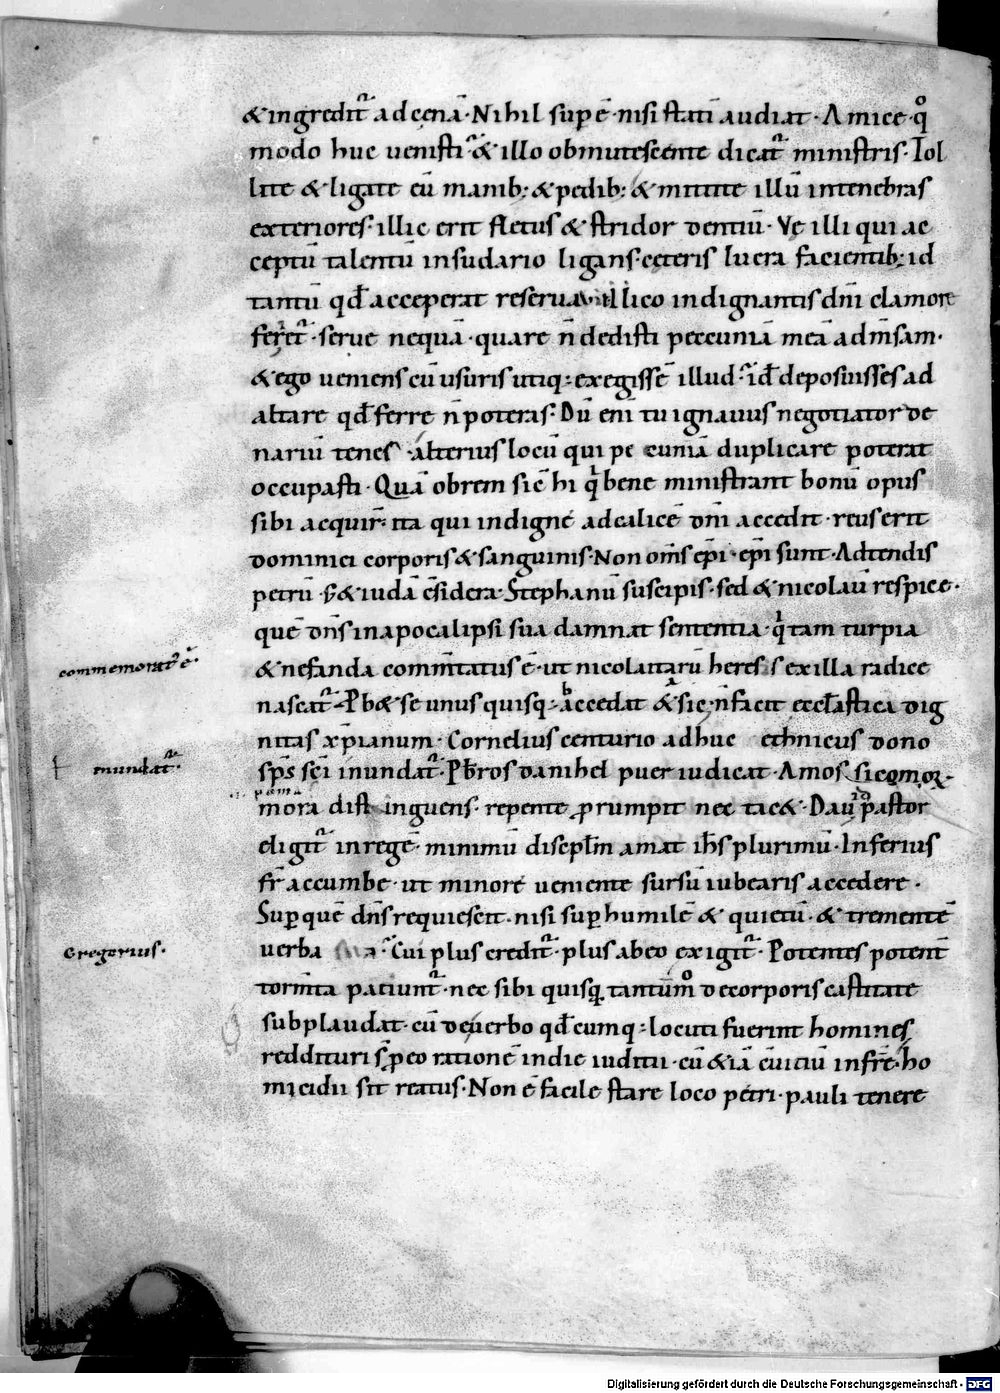 & ingredit᷑ ad cęnā · Nihil sup ē · nisi statī audiat · Amice · qͦ
modo huc uenisti᷑ & illo obmutescente dicat᷑ ministris · Tol
lite & ligate eū manib; & pedib; & mittite illū in tenebras
exteriores · illic erit fletus & stridor dentiū · Vę illi qui ac
ceptū talentū in sudario ligans · ceteris lucra facientib; id
tantū qđ acceperat reseruauit · illico indignantis dn̄i clamore
feriet᷑ · serue nequā · quare n̄ dedisti peccuniā meā ad m̄sam ·
& ego ueniens cū usuris utiq; exegissē illud · id deposuisses ad
altare qđ ferre n̄ poteras · Dū enī tu ignauus negotiator de
nariū tenes · alterius locū qui pe cuniā duplicare poterat
occupasti · Quā obrem sic̄ hi q̍ bene ministrant bonū opus
sibi acquir̄ · ita qui indigne ad calicē dn̄i accedit · reus erit
dominici corporis & sanguinis · Non om̄s ep̄i · ep̄i sunt · Adtendis
petrū · s; & iudā c̄sidera · Stephanū suscipis · sed & nicolaū respice ·
quē dn̄s in apocalipsi sua damnat sententia · q̍ tam turpia
& nefanda comm̄tatus ē · ut nicolaitarū heresis ex illa radice
commemorat᷑ ē ·
nascat᷑ · P b& se unus quisq; accedat & sic · n̄ facit eccl̄astica dig
nitas xp̄ianum · Cornelius centurio adhuc ethnicus dono
sp̄s sc̄i inundat᷑ · Pb̄ros danihel puer iudicat · Amos sicomor ·
mundat᷑ ·
mora distinguens · repente p̱rumpit nec tac& · Dauid pastor
eligit᷑ in regē · minimū discipl̄m amat ih̄s plurimū · Inferius
fr̄ accumbe · ut minore ueniente sursū iubearis accedere ·
Sup quē dn̄s requiescit · nisi sup humilē & quietū · & trementē
uerba sua᷑ Cui plus credit᷑ · plus ab eo exigit᷑ · Potentes potent̄
Gregorius ·
torm̄ta patiunt᷑ · nec sibi quisq; tantūmͦ de corporis castitate
subplaudat · cū de uerbo qđcumq; locuti fuerint homines
reddituri s̄ p eo rationē in die iudicii · cū & iā c̄uiciū in fr̄e · ho
micidii sit reatus · Non ē facile stare loco petri · pauli tenere
Digitalisierung gefördert durch die Deutsche Forschungsgemeinschaft - DFG